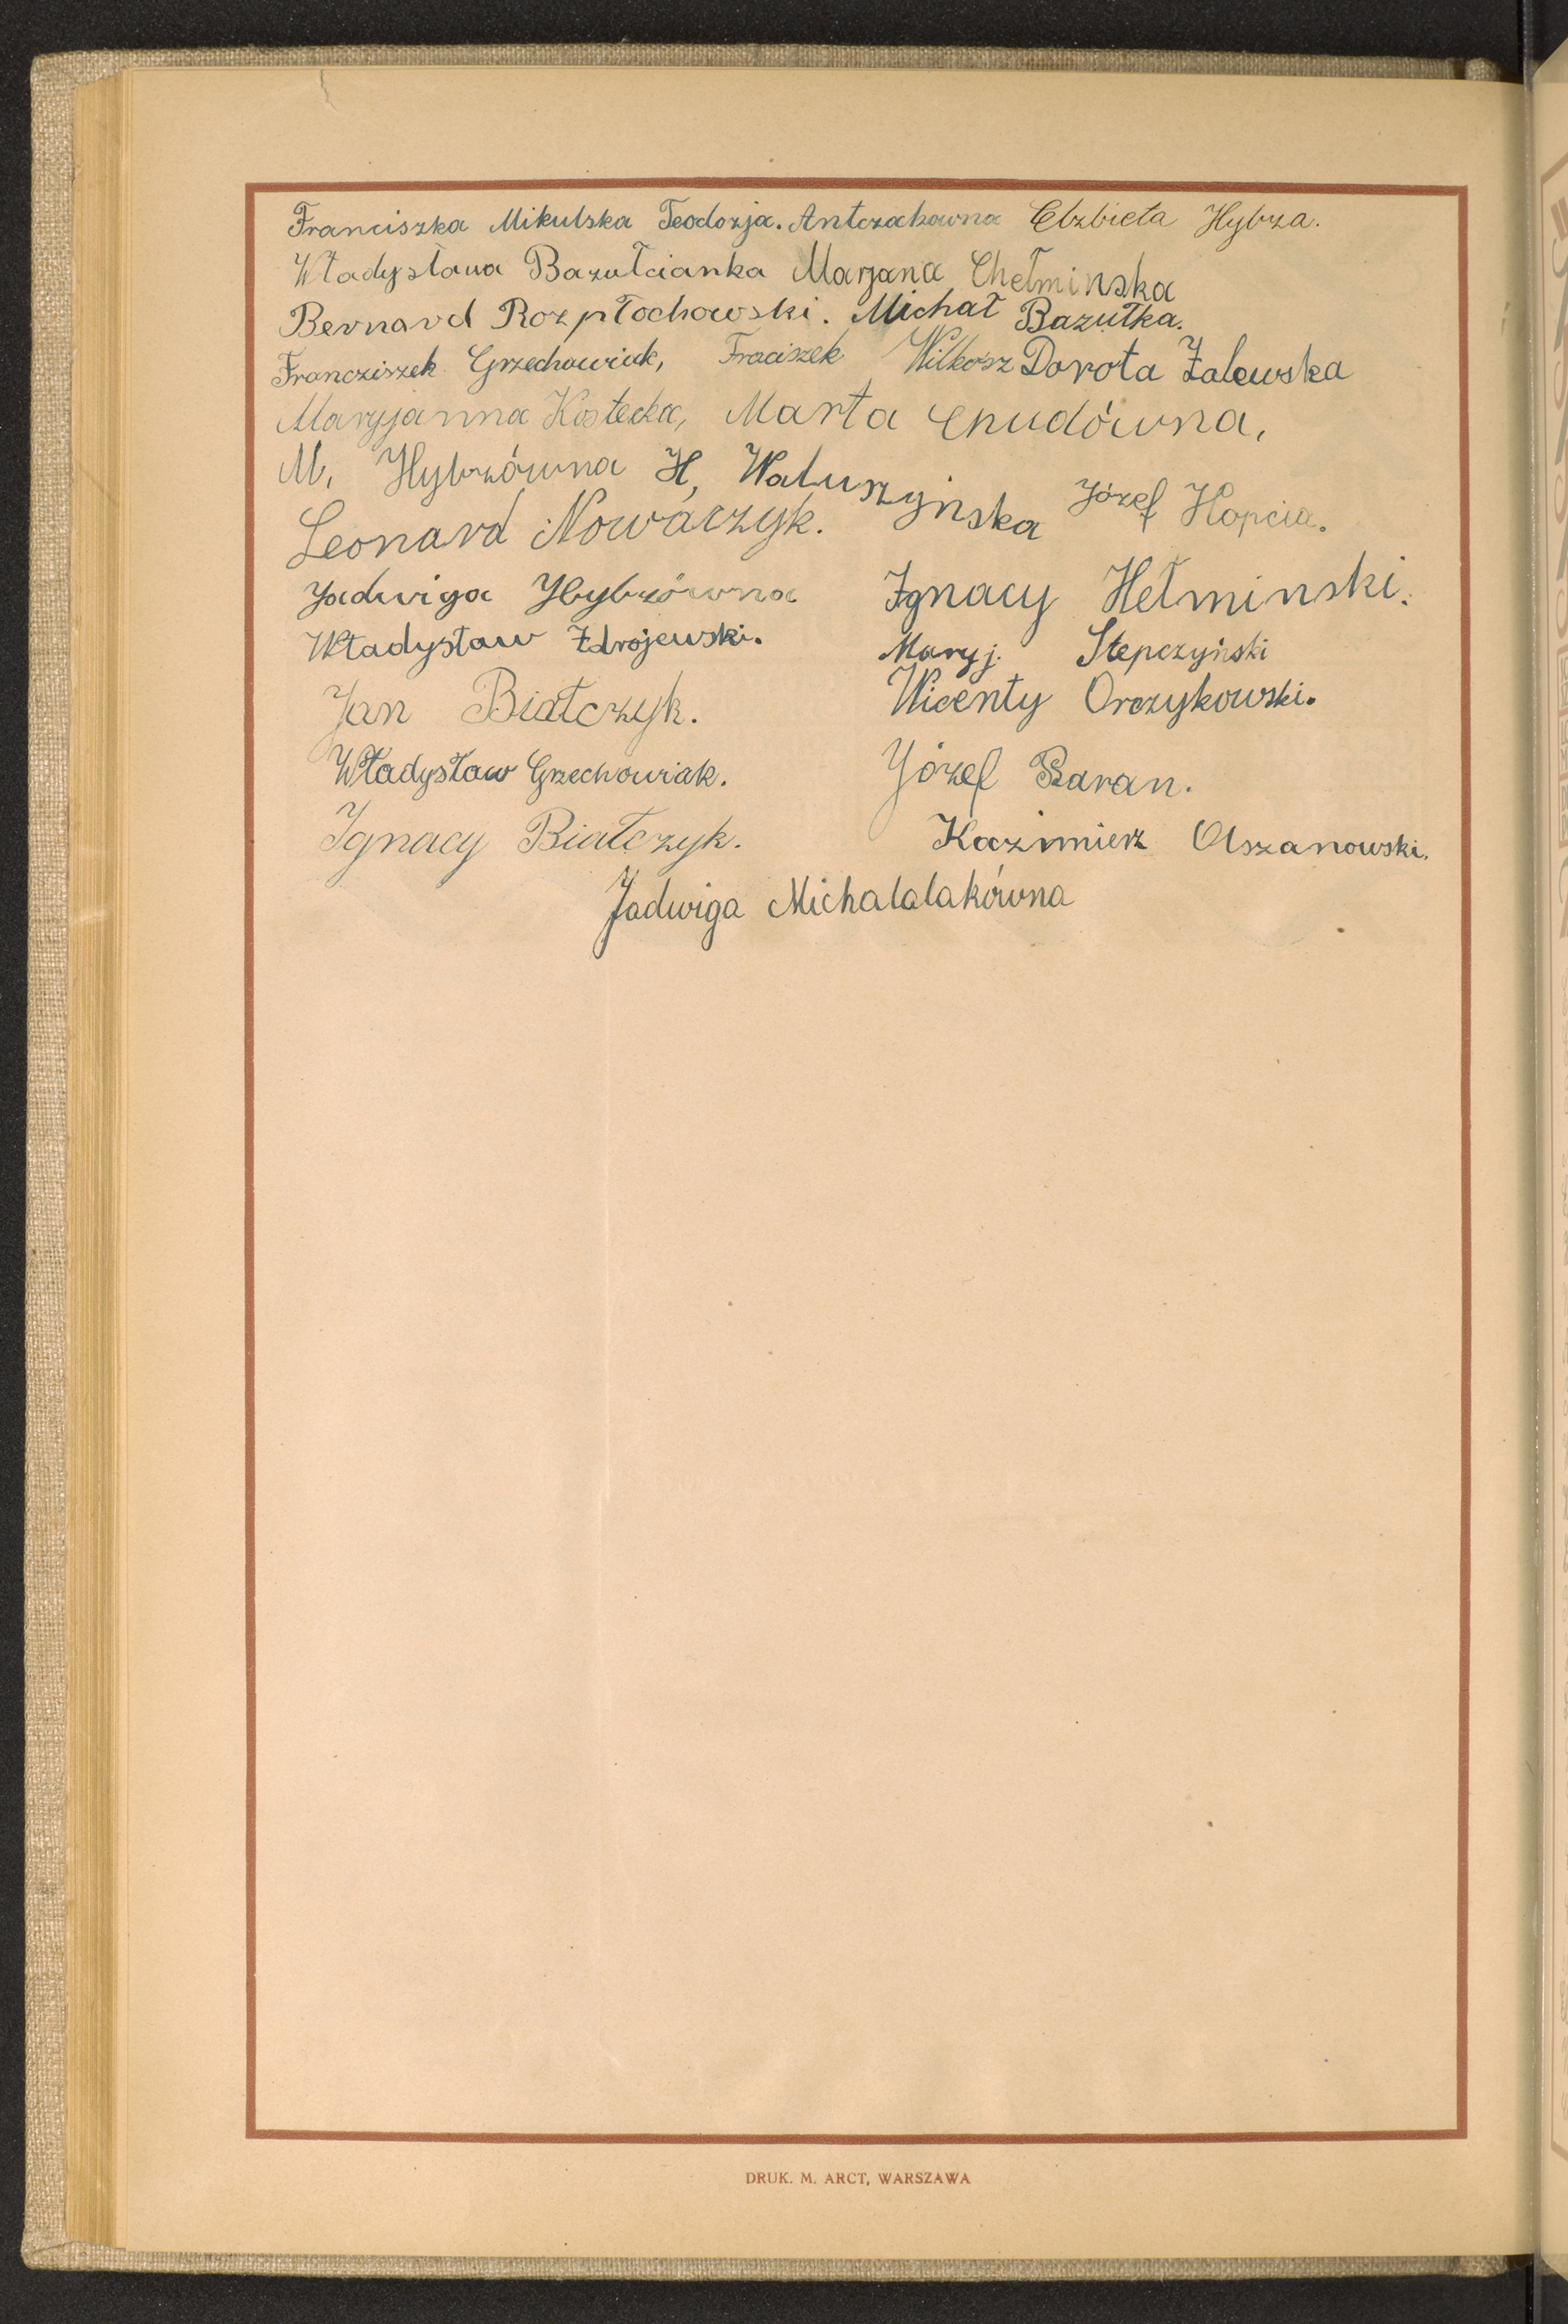 Franciszka Mikulska Teodozja. Antczakowna Elzbieta Hybza.
Władysława Bazułcianka Marjana Chełminska
Bernard Rozpłochowski. Michał Bazułka.
Francziszek Grzechowiak, Fraciszek Wilkosz Dorota Zalewska
Maryjanna Kostecka, Marta Chudówna,
M. Hybzówna H, Waluszyńska Józef Hopcia.
Leonard Nowaczyk.
Jadwiga Hybzówna Ignacy Hełminski.
Władysław Zdrojewski. Maryj. Stepczyński
Jan Białczyk. Wicenty Orczykowski.
Władysław Grzechowiak. Józef Baran.
Ignacy Białczyk. Kazimierz Olszanowski.
Jadwiga Michalalakówna
DRUK. M. ARCT, WARSZAWA